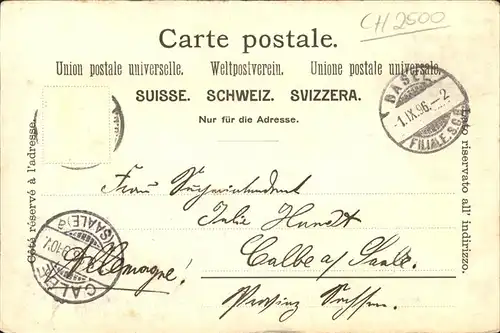 CH2500
Carte postale.
Union postale universelle. Weltpostverein. Unione postale universale.
SUISSE. SCHWEIZ. SVIZZERA.
Nur für die Adresse.
Côté réservé à l'adresse.
Lato riservato all' indirizzo.
BASEL
-1.IX.96.-2
FILIALE.S.C.B.
Frau Superintendent
Julie Hundt
Calbe a/Saale.
Allemagne!
Provinz Sachsen.
CALBE
(SAALE) a